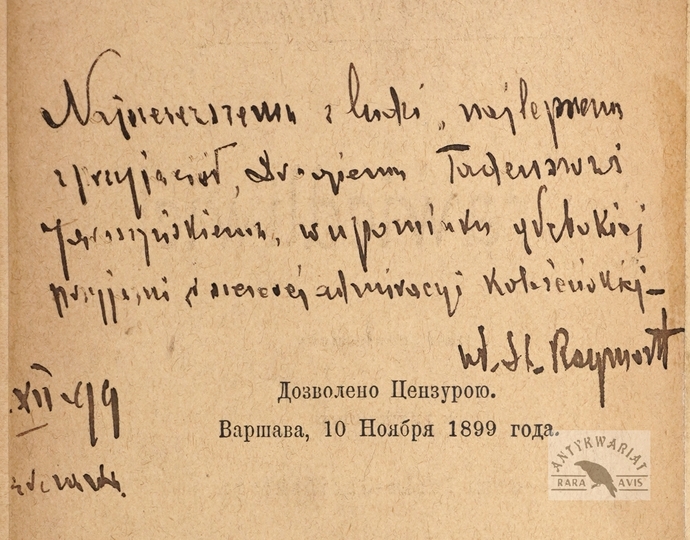 Najszczerszemu z ludzi, najlepszemu
z przyjaciół, Drogiemu Tadeuszowi
Jaroszyńskiemu, w upominku głębokiej
przyjaźni i szczerej admiracyi koleżeńskiej –
Wł. St. Reymont
Дозволено Цензурою.
XII 99
Варшава, 10 Ноября 1899 года.
ANTYKWARIAT
RARA AVIS